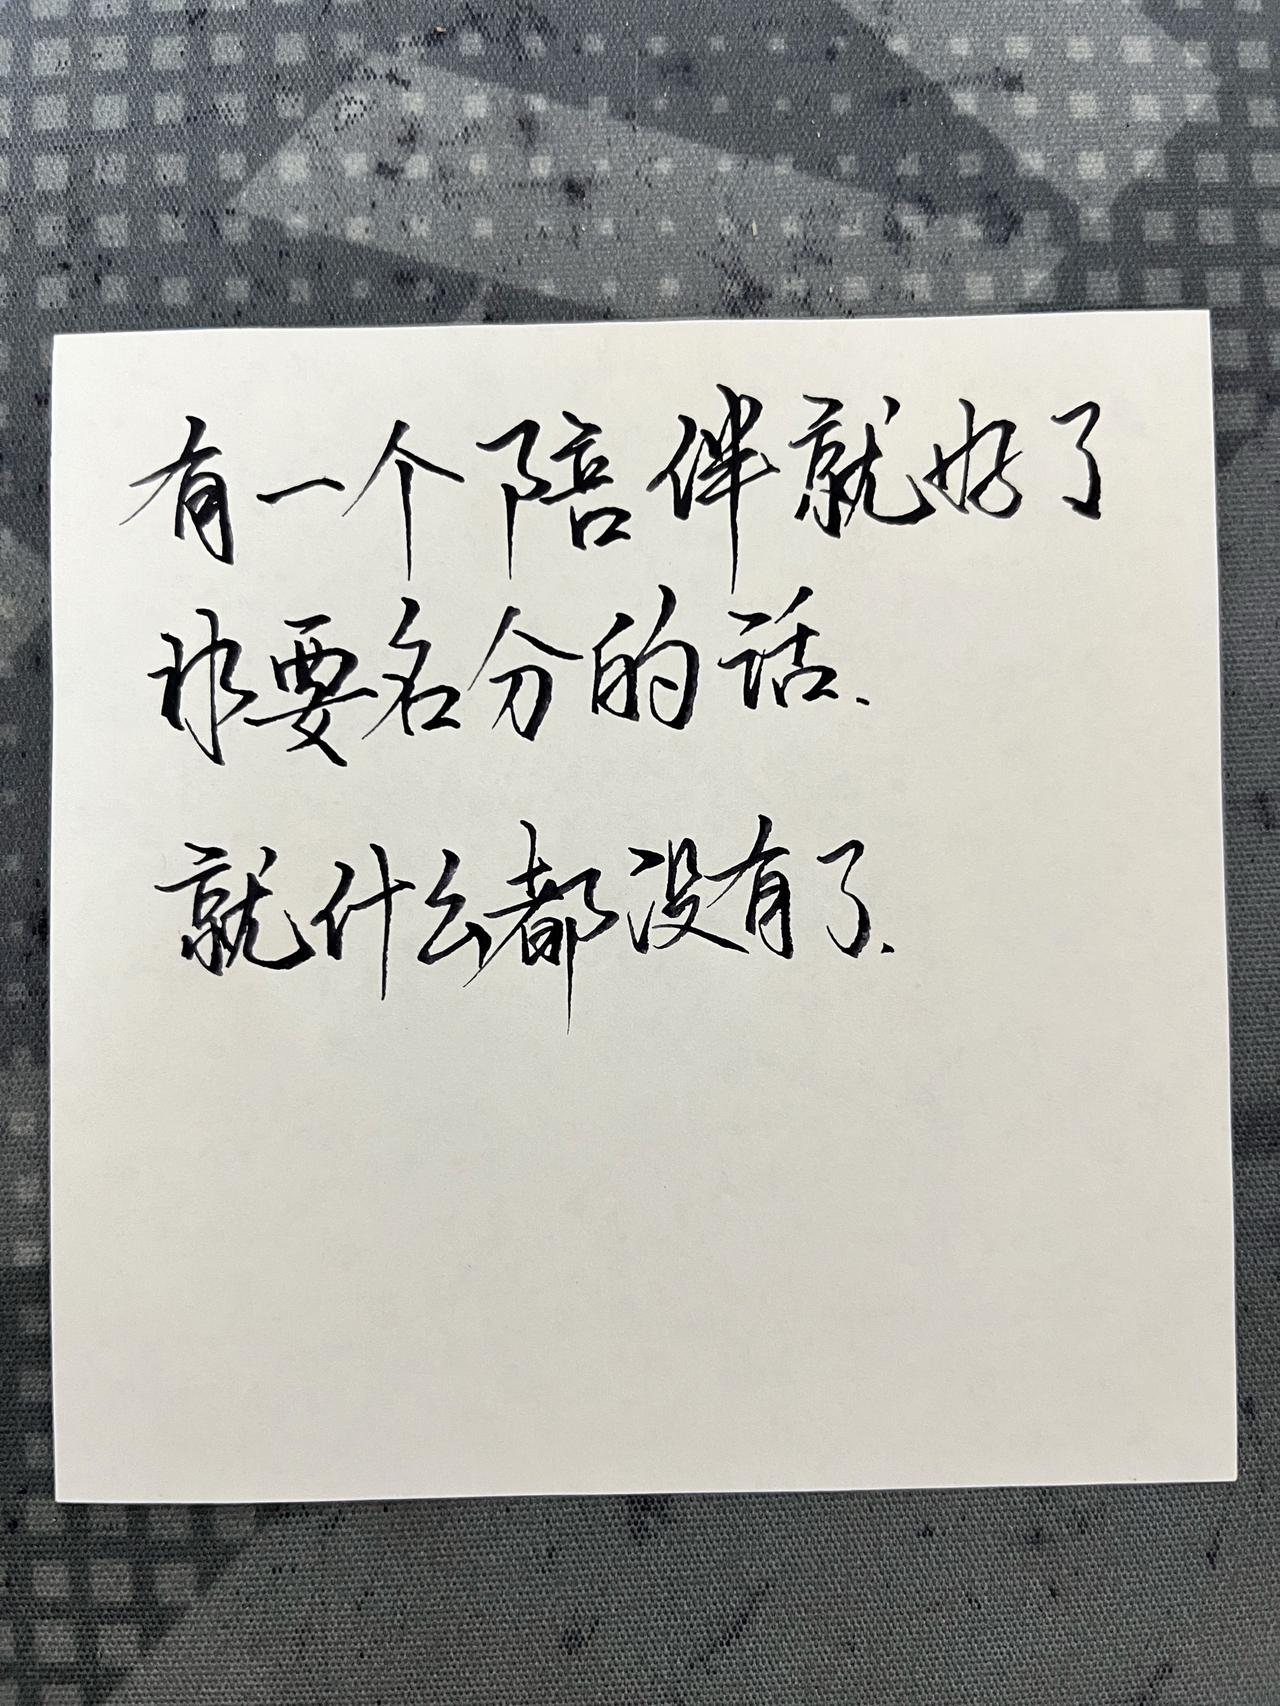 有一个陪伴就好了
非要名分的话.
就什么都没有了.